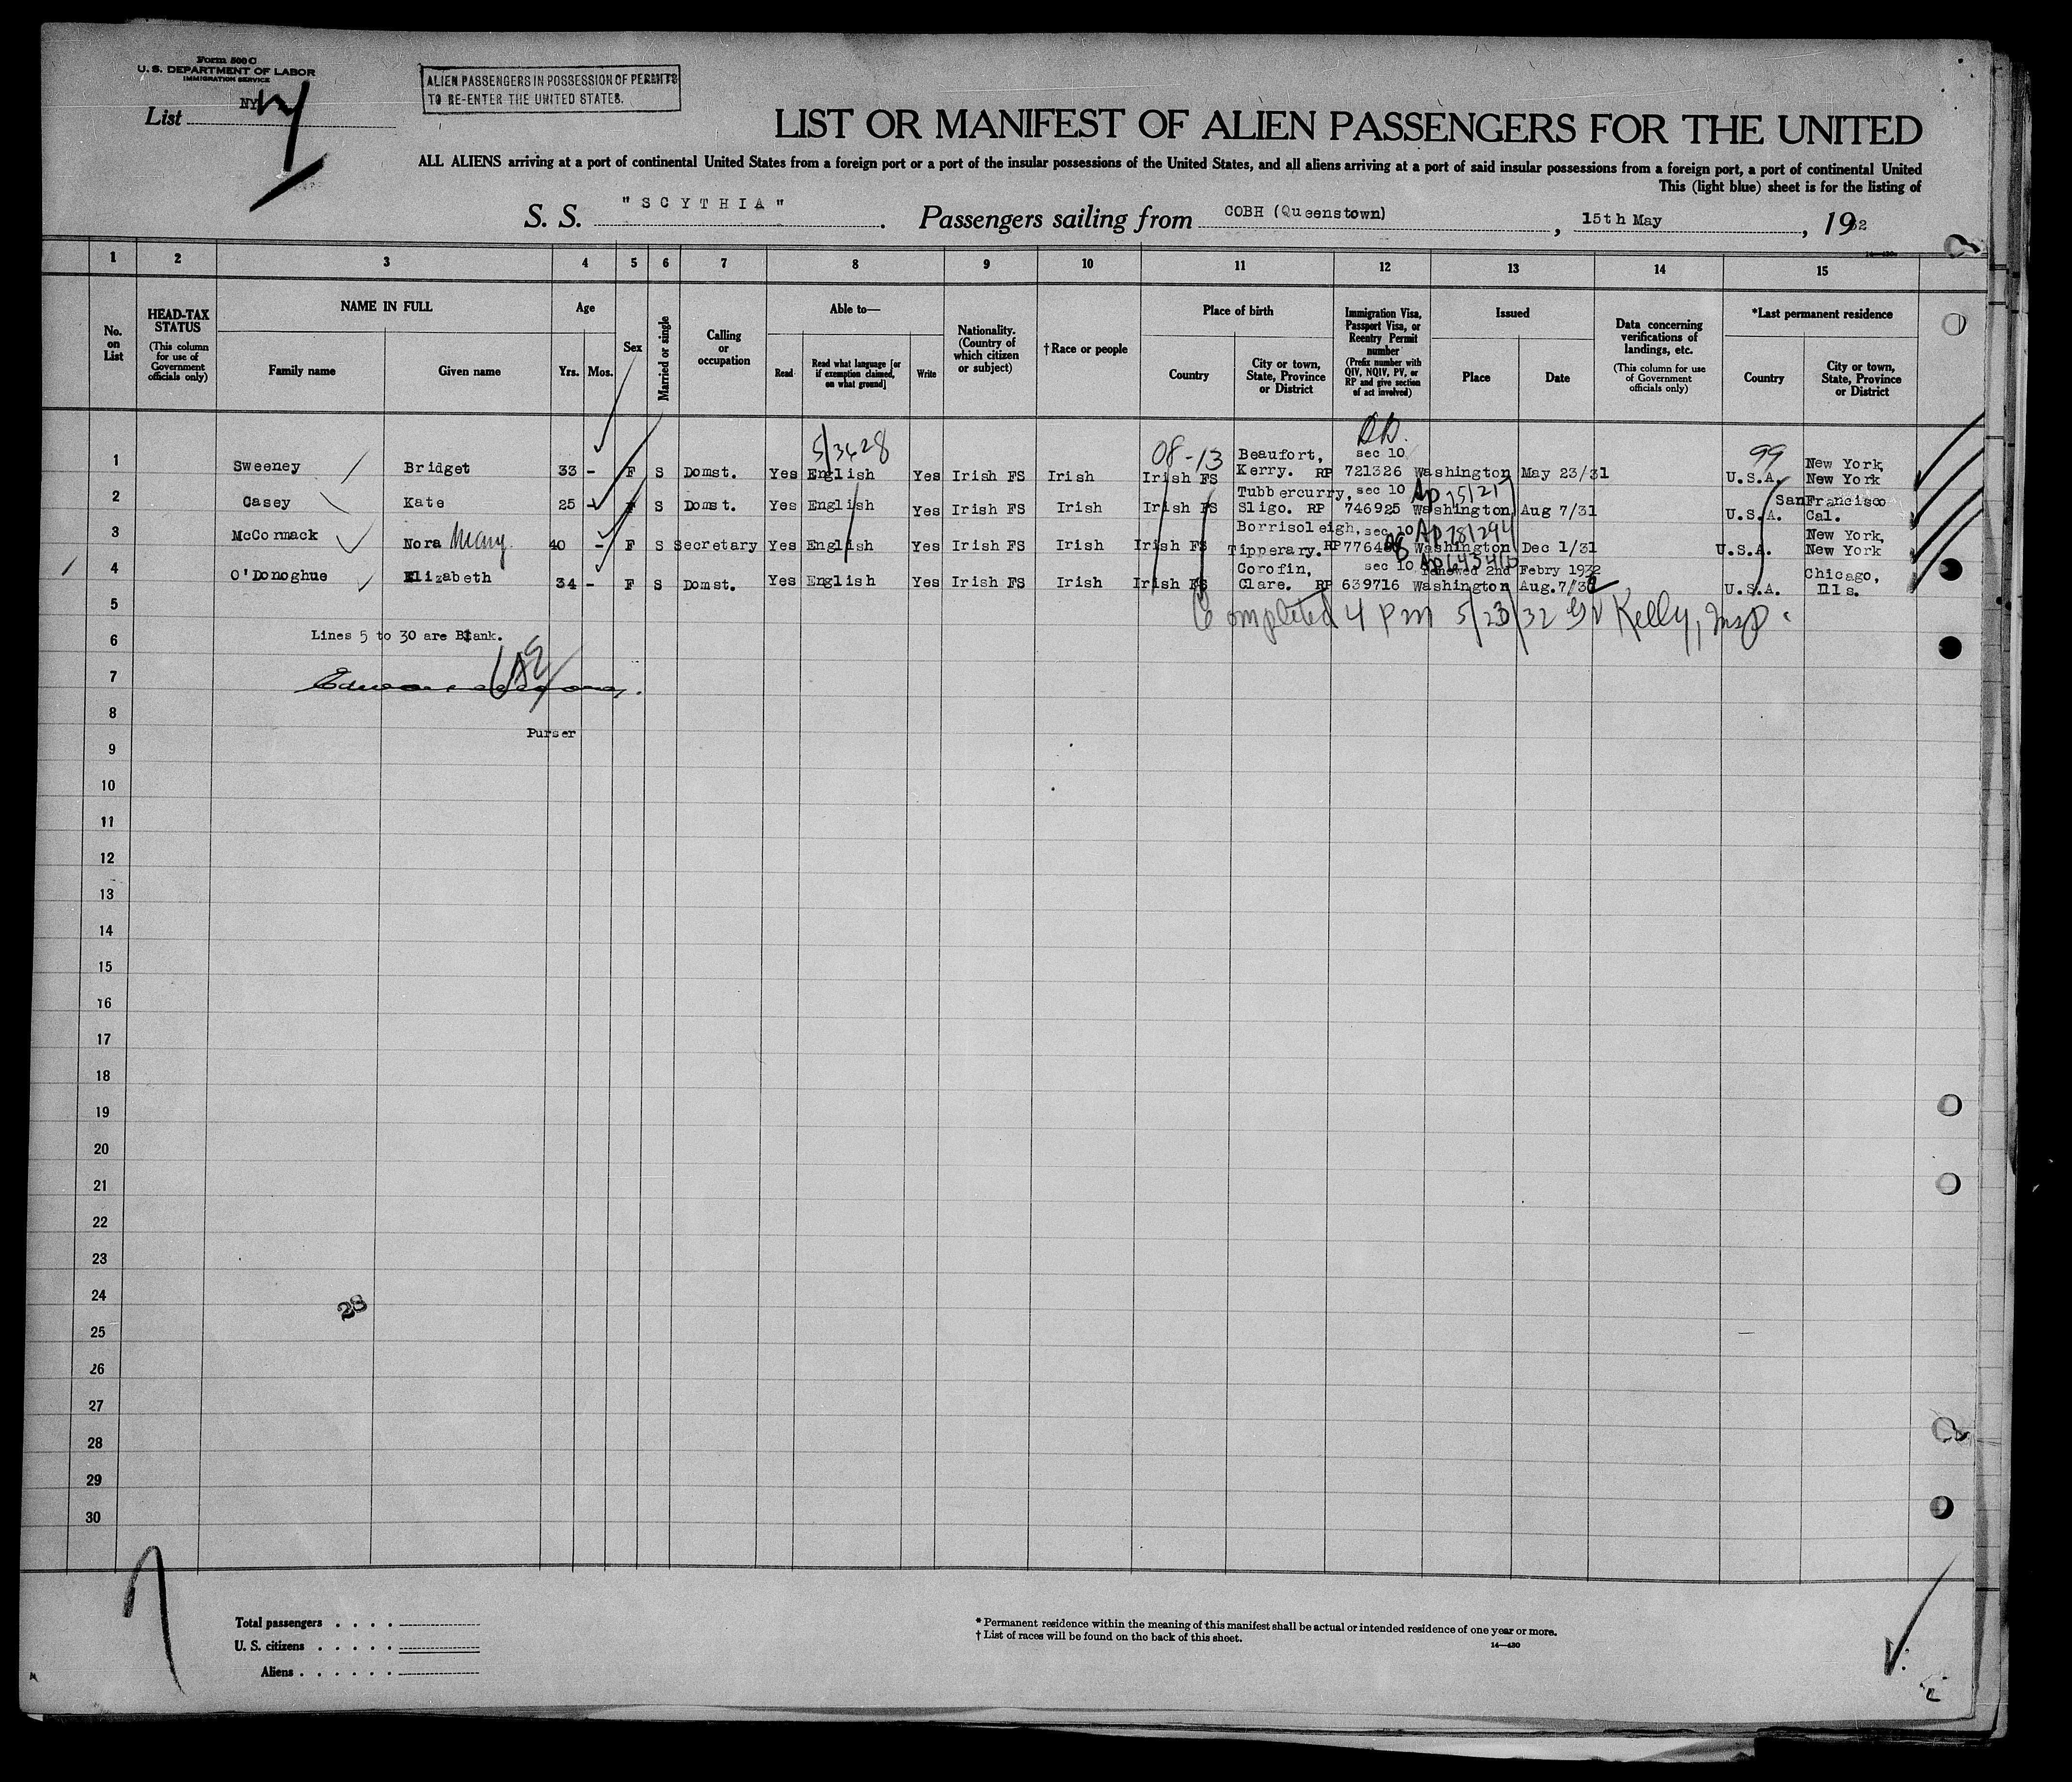 Form 500 C
U. S. DEPARTMENT OF LABOR
IMMIGRATION SERVICE
NY
List
ALIEN PASSENGERS IN POSSESSION OF PERMITS
TO RE-ENTER THE UNITED STATES.
LIST OR MANIFEST OF ALIEN PASSENGERS FOR THE UNITED
ALL ALIENS arriving at a port of continental United States from a foreign port or a port of the insular possessions of the United States, and all aliens arriving at a port of said insular possessions from a foreign port, a port of continental United
This (light blue) sheet is for the listing of
S. S. "SCYTHIA". Passengers sailing from COBH (Queenstown), 15th May, 1932
14—430
1 2 3 4 5 6 7 8 9 10 11 12 13 14 15
No. on List
HEAD-TAX STATUS
(This column for use of Government officials only)
NAME IN FULL
Family name Given name
Age
Yrs. Mos.
Sex
Married or single
Calling or occupation
Able to—
Read Read what language [or if exemption claimed, on what ground] Write
Nationality. (Country of which citizen or subject)
†Race or people
Place of birth
Country City or town, State, Province or District
Immigration Visa, Passport Visa, or Reentry Permit number
(Prefix number with QIV, NQIV, PV, or RP and give section of act involved)
Issued
Place Date
Data concerning verifications of landings, etc.
(This column for use of Government officials only)
*Last permanent residence
Country City or town, State, Province or District
5/3628 08-13 99
Beaufort, sec 10 New York,
1 Sweeney Bridget 33 - F S Domst. Yes English Yes Irish FS Irish Irish FS Kerry. RP 721326 Washington May 23/31 U.S.A. New York
Tubbercurry, sec 10 Ap 75/217 San Francisco
2 Casey Kate 25 - F S Domst. Yes English Yes Irish FS Irish Irish FS Sligo. RP 746925 Washington Aug 7/31 U.S.A. Cal.
Borrisoleigh, sec 10 Ap 78/294 New York,
3 McCormack Nora Mary. 40 - F S Secretary Yes English Yes Irish FS Irish Irish FS Tipperary. RP 7764 Washington Dec 1/31 U.S.A. New York
Corofin, sec 10 renewed 2nd Febry 1932 Chicago,
4 O'Donoghue Elizabeth 34 - F S Domst. Yes English Yes Irish FS Irish Irish FS Clare. RP 639716 Washington Aug.7/3 U.S.A. Ills.
5 Completed 4 pm 5/23/32 Kelly, Insp.
6 Lines 5 to 30 are Blank.
7
8
Purser
9
10
11
12
13
14
15
16
17
18
19
20
21
22
23
24
28
25
26
27
28
29
30
Total passengers
U. S. citizens
Aliens
* Permanent residence within the meaning of this manifest shall be actual or intended residence of one year or more.
† List of races will be found on the back of this sheet.
14—430